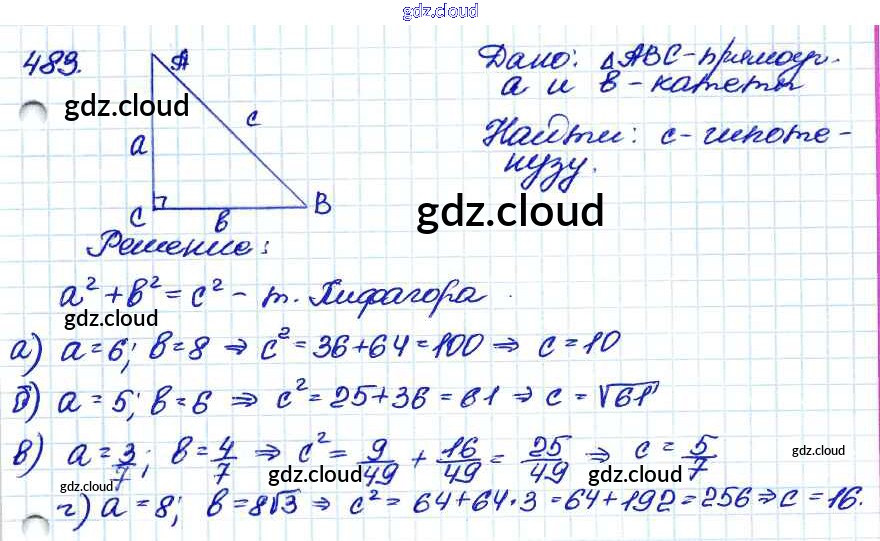 gdz.cloud
489.
A
Дано: △ABC - прямоуг.
a и b - катеты
gdz.cloud
c
a
Найти: c - гипоте-
нузу.
C
b
B
gdz.cloud
Решение:
a² + b² = c² - т. Пифагора.
gdz.cloud
а) a = 6; b = 8 ⇒ c² = 36 + 64 = 100 ⇒ c = 10
б) a = 5; b = 6 ⇒ c² = 25 + 36 = 61 ⇒ c = √61
в) a = 3/7; b = 4/7 ⇒ c² = 9/49 + 16/49 = 25/49 ⇒ c = 5/7
gdz.cloud
gdz.cloud
gdz.cloud
gdz.cloud
г) a = 8; b = 8√3 ⇒ c² = 64 + 64·3 = 64 + 192 = 256 ⇒ c = 16.